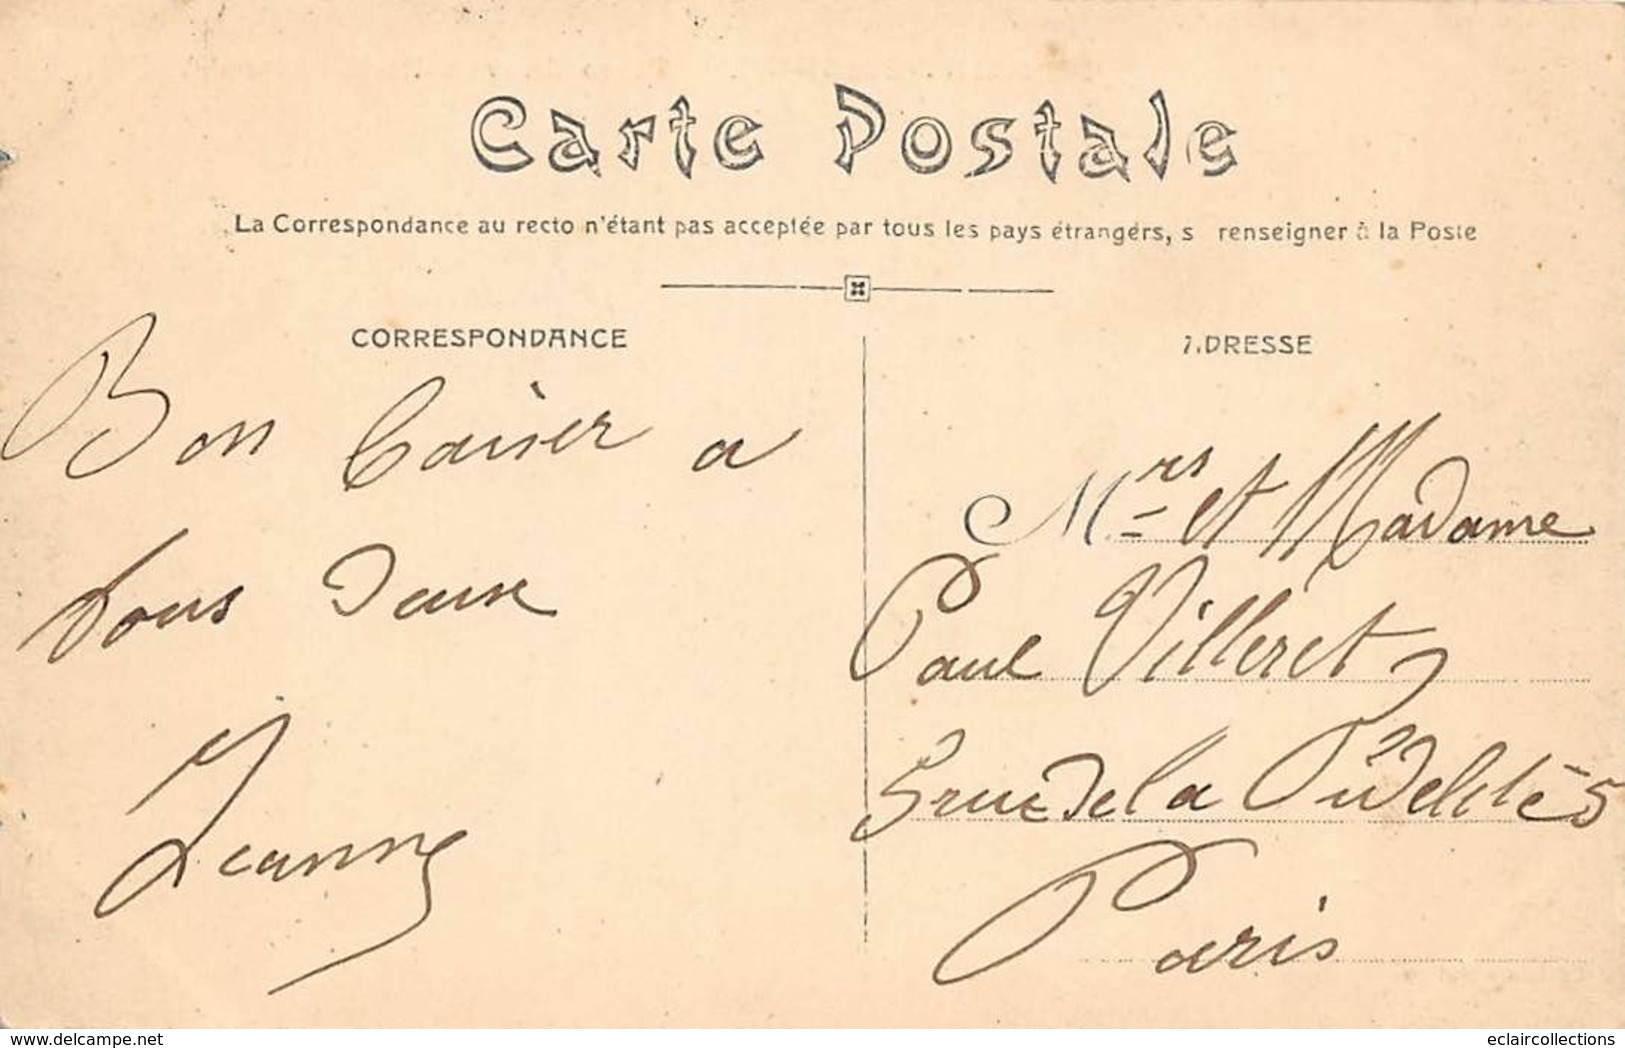 Carte Postale
La Correspondance au recto n'étant pas acceptée par tous les pays étrangers, s renseigner à la Poste
CORRESPONDANCE
ADRESSE
Bon baiser a
tous deux
Jeanne
Mrs et Madame
Paul Villeret
5 rue de la Fidelité 5
Paris
delcampe.net
eclaircollections